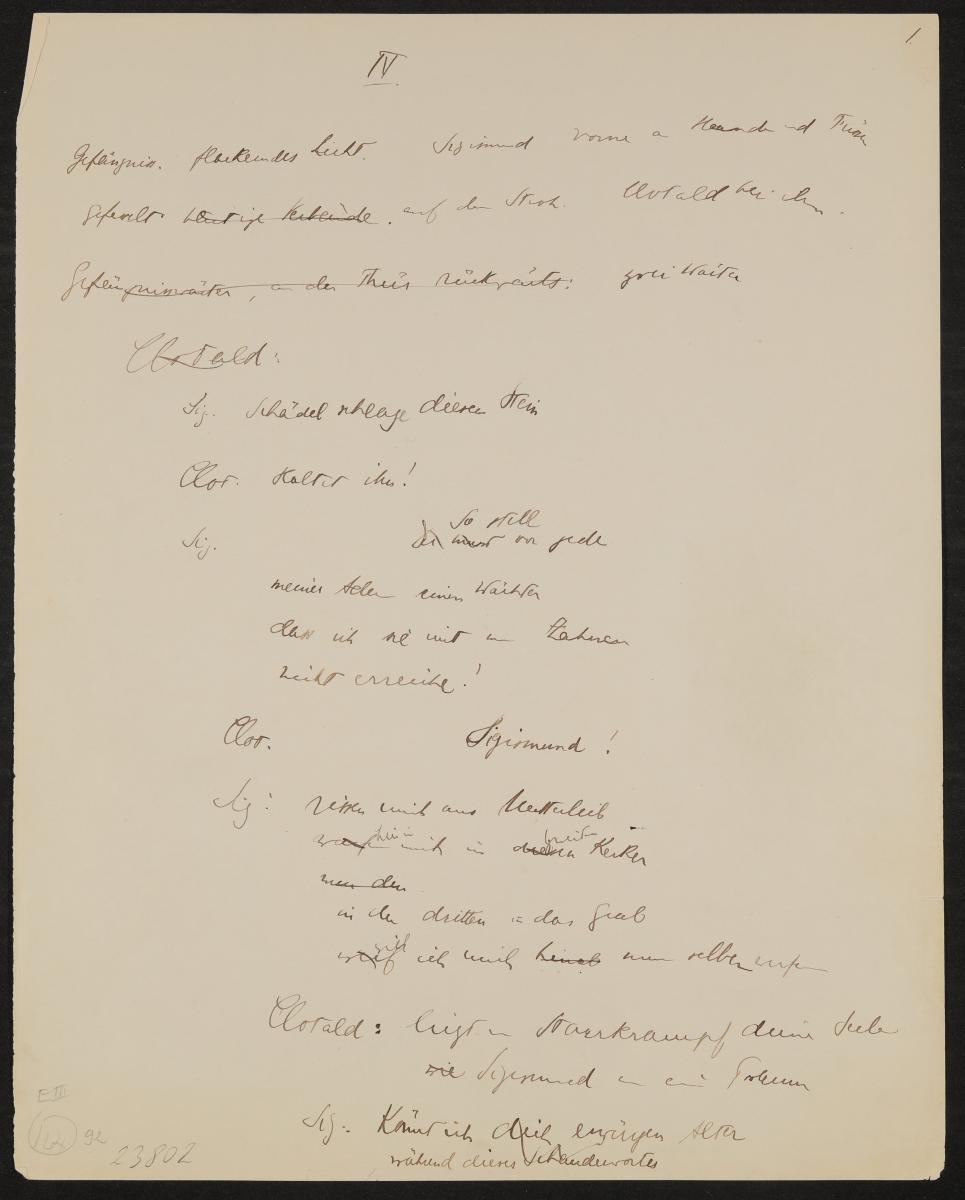 1.
IV.
Gefängnis. flackerndes Licht. Sigismund vorne an Händen und Füssen
gefesselt blutige Verbände. auf dem Stroh. Clotald bei ihm.
Gefängniswärter, an der Thür rückwärts: zwei Wärter
Clotald:
Sig. Schädel schlage diesen Stein
Clot. Haltet ihn!
So still
Sig. Du musst vor jede
meiner Adern einen Wächter
dass ich sie mit den Zähnen
nicht erreiche!
Clot. Sigismund!
Sig: rissen mich aus Mutterleib
hinein breiten
warfen mich in diesen Kerker
nun den
in den dritten in das Grab
will
werf ich mich hinab nun selber werfen
Clotald: liegt im Starrkrampf deine Seele
wie Sigismund in ein Traum
Sig. Könnt ich dich erwürgen Alter
während dieses Schandewortes
E III
92
23802